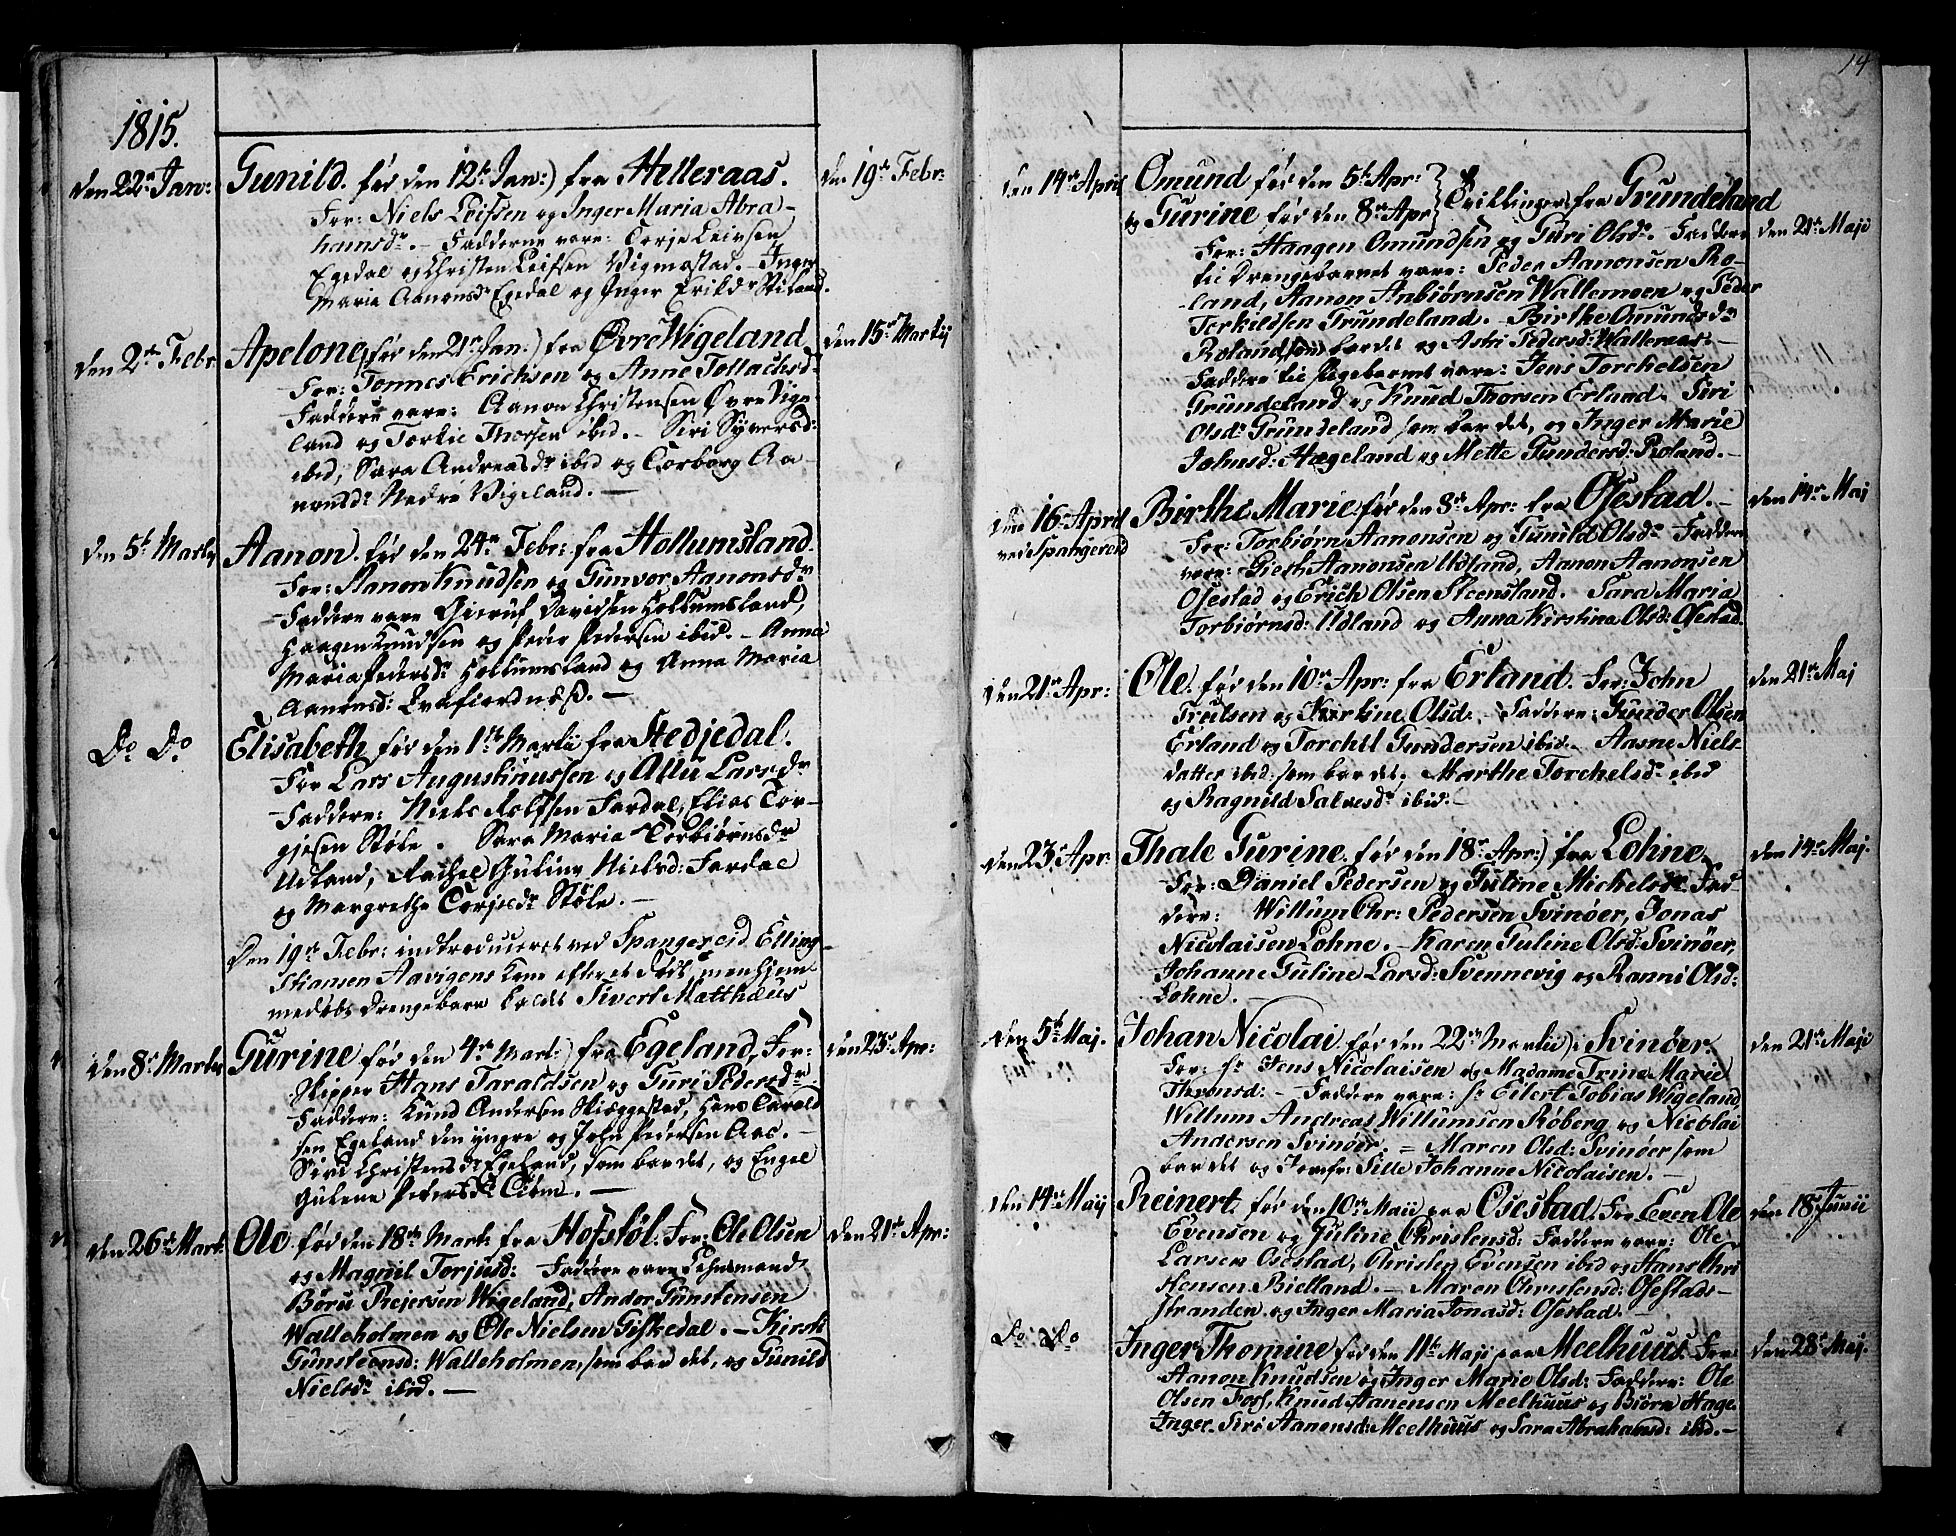 1815.
den 22de Jan: Gunild. fød den 12te Jan:) fra Helleraas. den 19de Febr:
For: Niels Leifsen og Inger Maria Abra-
hamsdr. - Fadderne vare: Torje Leivsen
Egedal og Christen Leifsen Vigmostad. - Inger
Maria Aanonsdr Egedal og Inger Erildr Stiland.
den 2den Febr: Apelone, fød den 21de Jan.) fra Øvre Wigeland den 15de Martij
For: Tønnes Erichsen og Anne Tollachsd:
Faddere vare: Aanon Christensen Øvre Vige-
land og Torkil Thorsen ibid. - Siri Syversd:
ibid, Sara Andreasdr ibid og Torborg Aa-
nonsdr Nedre Vigeland. -
den 5te Martij Aanon. fød den 24de Febr: fra Hollumsland.
For: Aanon Knudsen og Gunvor Aanonsdr
Faddere vare Gieruf Davidsen Hollumsland,
Haagen Knudsen og Peder Pedersen ibid. - Anna
Maria Pedersdr Hollumsland og Anna Maria
Aanonsd: -
Do Do Elisabeth fød den 1ste Martii fra Stedjedal.
For Lars Augustinussen og Allu Larsdr
Faddere: Niels Rolfsen Fardal, Elias Tor-
gjesen Støle. Sara Maria Torbiørnsdr
Udland, Rachel Guline Nielsd: Fardal
og Margrethe Torjesdr Støle. -
Den 19de Febr: introduceret ved Spangereid Elling
Stiansen Aavigens Kone efter et født, men hjem-
medøbt Drengebarn kaldet Sivert Matthæus
den 8de Martii Gurine fød den 4de Mart:) fra Egeland, For: den 23de Apr:
Skipper Hans Taraldsen og Guri Pedersdr.
Faddere: Knud Andersen Skieggestad, Hans Tarald
sen Egeland den yngre og John Pedersen Aas. -
Siri Christensdr Egeland, som bar det, og Engel
Gulene Pedersdr Tiøm. -
den 26de Mart: Ole fød den 18de Mart: fra Hofstøl. For: Ole Olsen den 21de Apr:
og Magnil Torjusd: Faddere vare Lehnsmand
Børu Reiersen Wigeland, Andor Gunstensen
Walleholmen og Ole Nielsen Giskedal. - Kirsti
Gunsteonsd: Walleholmen, som bar det, og Gunild
Nielsdr ibid. -
14
den 14de April Omund fød den 5te Apr: } Tvillinger fra Grundeland
og Gurine fød den 8de Apr }
For: Haagen Omundsen og Guri Olsdr. Faddere den 21de Maji
til Drengebarnet vare: Peder Aanonsen Ro-
land, Aanon Anbiørnsen Wallemoen og Peder
Terkildsen Grundeland. - Birthe Omundsdr
Roland, som bar det og Astri Pedersdr Walleraas. -
Faddere til Pigebarnet vare: Jens Torchelsen
Grundeland og Knud Thorsen Erland. Siri
Olsdr Grundeland som bar det, og Inger Marie
Johnsd: Hægeland og Mette Gundersd: Roland. -
den 16de April Birthe Marie fød den 8de Apr: fra Osestad. - den 14de Maj
ved Spangereid
For: Torbiørn Aanonsen og Gunild Olsdr Faddere
vare: Greth Aanonsen Udland, Aanon Aanonsen
Osestad og Erich Olsen Steensland. Sara Maria
Torbiørnsd: Udland og Anna Kirstina Olsd: Osestad.
den 21de Apr: Ole. fød den 10de Apr: fra Erland. For: John den 21de Maj
Trulsen og Kirtine Olsd. - Faddere: Gunder Olsen
Erland og Torchel Gundersen ibid. - Aasne Niels-
datter ibid: som bar det. Marthe Torchelsdr ibid
og Ragnild Salvesdr ibid. -
den 23de Apr: Thale Gurine. fød den 18de Apr:) fra Lohne. den 14de Maj.
For: Daniel Pedersen og Guline Michelsdr. Fad-
dere: Willum Chr: Pedersen Svinøer, Jonas
Nicolaisen Lohne. - Karen Guline Olsd: Svinøer,
Johanne Guline Larsd: Svennevig og Ranni Olsd:
Lohne. -
den 5te Maj. Johan Nicolai. fød den 22de Martii) i Svinøer. den 21de Maji
For: Sr Jens Nicolaisen og Madame Trine Marie
Thomsd: - Faddere vare: Sr Eilert Tobias Wigeland
Willum Andreas Willumsen Røberg og Nicolai
Andersen Svinøer. = Maren Olsd: Svinøer som
bar det og Jomfr: Sille Johanne Nicolaisen. -
den 14de Maij Reinert. fød den 10de Maii fra Osestad. For Even Ole den 18de Junii
Evensen og Guline Christensd: Faddere vare: Ole
Larsen Osestad, Christen Evensen ibid og Hans Chri
stensen Bielland. - Maren Christensd: Osestads-
stranden og Inger Maria Jonasd: Osestad.
Do Do Inger Thomine fød den 11te Maji fra Meelhuus. For: den 28de Maj.
Aanon Knudsen og Inger Marie Olsd: Faddere: Ole
Olsen Foss, Knud Aanensen Meelhuus og Biørn Hage.
Inger Siri Aanensd: Meelhuus og Sara Abrahamsd: ibid. -